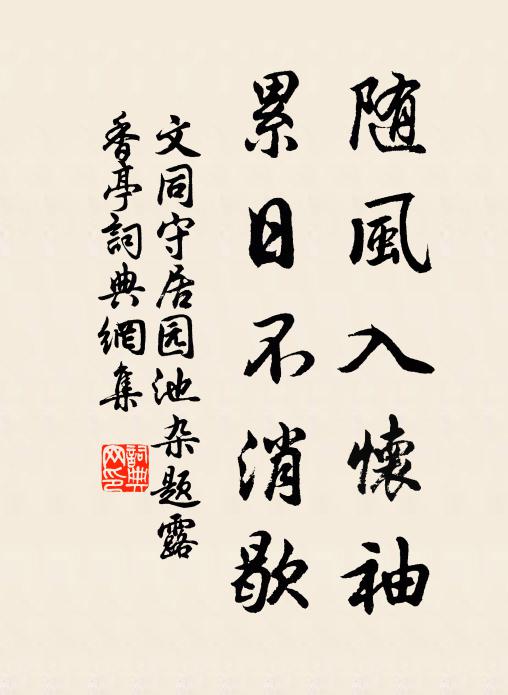 随風入懷袖
累日不消歇
文同守居园池杂题露
香亭詞典網集
詞典网印